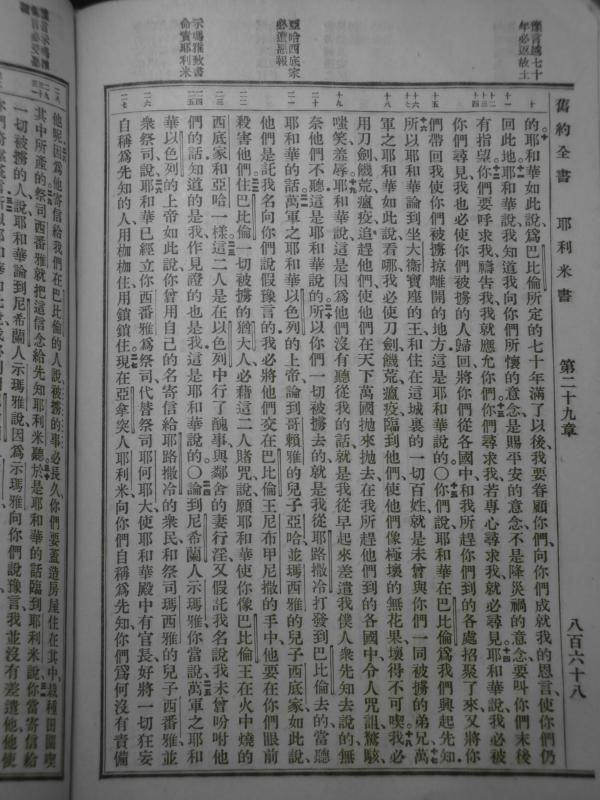 舊約全書　耶利米書　第二十九章　八百六十八
豫言過七十
年必返故土
亞哈西底家
必遭惡報
示瑪雅致書
命責耶利米
的耶和華如此說爲巴比倫所定的七十年滿了以後我要眷顧你們向你們成就我的恩言使你們仍
回此地耶和華說我知道我向你們所懷的意念是賜平安的意念不是降災禍的意念要叫你們末後
有指望你們要呼求我禱告我我就應允你們你們尋求我若專心尋求我就必尋見耶和華說我必被
你們尋見我也必使你們被擄的人歸回將你們從各國中和我所趕你們到的各處招聚了來又將你
們帶回我使你們被擄掠離開的地方這是耶和華說的〇你們說耶和華在巴比倫爲我們興起先知
所以耶和華論到坐大衛寶座的王和住在這城裏的一切百姓就是未曾與你們一同被擄的弟兄萬
軍之耶和華如此說看哪我必使刀劍饑荒瘟疫臨到他們使他們像極壞的無花果壞得不可喫我必
用刀劍饑荒瘟疫追趕他們使他們在天下萬國拋來拋去在我所趕他們到的各國中令人咒詛驚駭
嗤笑羞辱耶和華說這是因爲他們沒有聽從我的話就是我從早起來差遣我僕人衆先知去說的無
奈他們不聽這是耶和華說的所以你們一切被擄去的就是我從耶路撒冷打發到巴比倫去的當聽
耶和華的話萬軍之耶和華以色列的上帝論到哥賴雅的兒子亞哈並瑪西雅的兒子西底家如此說
他們是託我名向你們說假豫言的我必將他們交在巴比倫王尼布甲尼撒的手中他要在你們眼前
殺害他們住巴比倫一切被擄的猶大人必藉這二人賭咒說願耶和華使你像巴比倫王在火中燒的
西底家和亞哈一樣這二人是在以色列中行了醜事與鄰舍的妻行淫又假託我名說我未曾吩咐他
們的話知道的是我作見證的也是我這是耶和華說的〇論到尼希蘭人示瑪雅你當說萬軍之耶和
華以色列的上帝如此說你曾用自己的名寄信給耶路撒冷的衆民和祭司瑪西雅的兒子西番雅並
衆祭司說耶和華已經立你西番雅爲祭司代替祭司耶何耶大使耶和華殿中有官長好將一切狂妄
自稱爲先知的人用枷枷住用鎖鎖住現在亞拿突人耶利米向你們自稱爲先知你們爲何沒有責備
他呢因爲他寄信給我們在巴比倫的人說被擄的事必長久你們要蓋造房屋住在其中栽種田園喫
其中所產的祭司西番雅就把這信念給先知耶利米聽於是耶和華的話臨到耶利米說你當寄信給
一切被擄的人說耶和華論到尼希蘭人示瑪雅說因爲示瑪雅向你們說豫言我並沒有差遣他他使